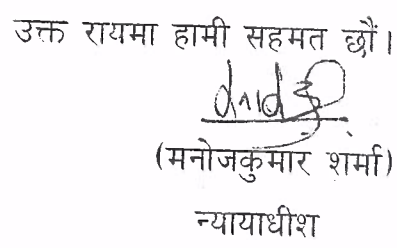 उक्त रायमा हामी सहमत छौं।
(मनोजकुमार शर्मा)
न्यायाधीश